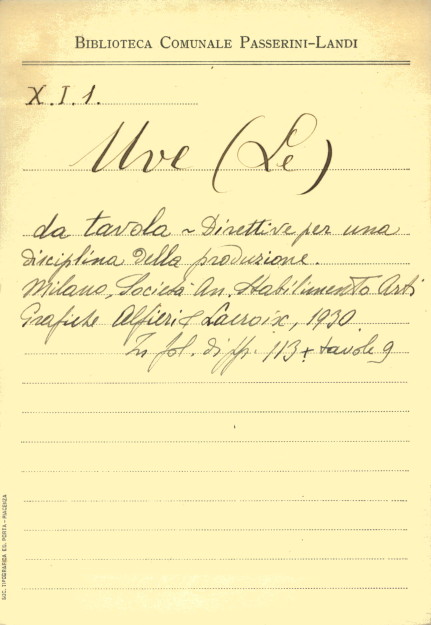 BIBLIOTECA COMUNALE PASSERINI-LANDI
X.I.1.
Uve (Le)
da tavola ~ Direttive per una
disciplina della produzione.
Milano, Società An. Stabilimento Arti
Grafiche Alfieri & Lacroix, 1930.
In fol. di pp. 113 + tavole 9
SOC. TIPOGRAFICA ED. PORTA - PIACENZA